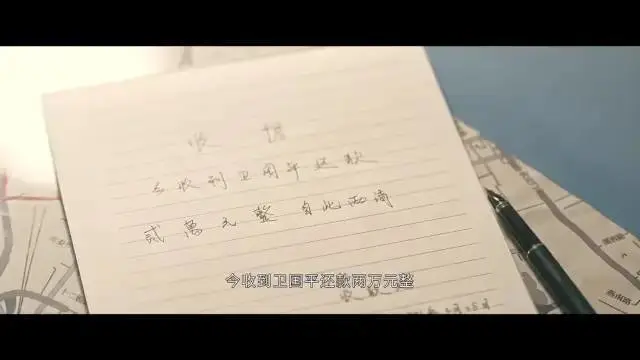 收 据
今收到卫国平还款
贰萬元整 自此两清
今收到卫国平还款两万元整